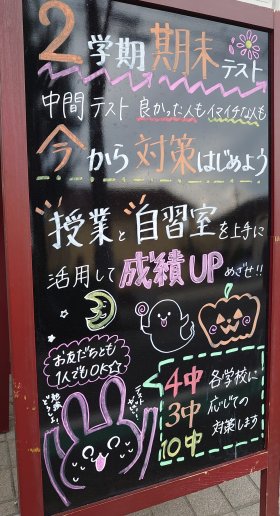 2学期期末テスト
中間テスト良かった人もイマイチな人も
今から対策はじめよう
授業と自習室を上手に
活用して成績UPめざせ!!
お友だちとも
1人でもOK☆
4中
3中
10中
各学校に
応じての
対策します